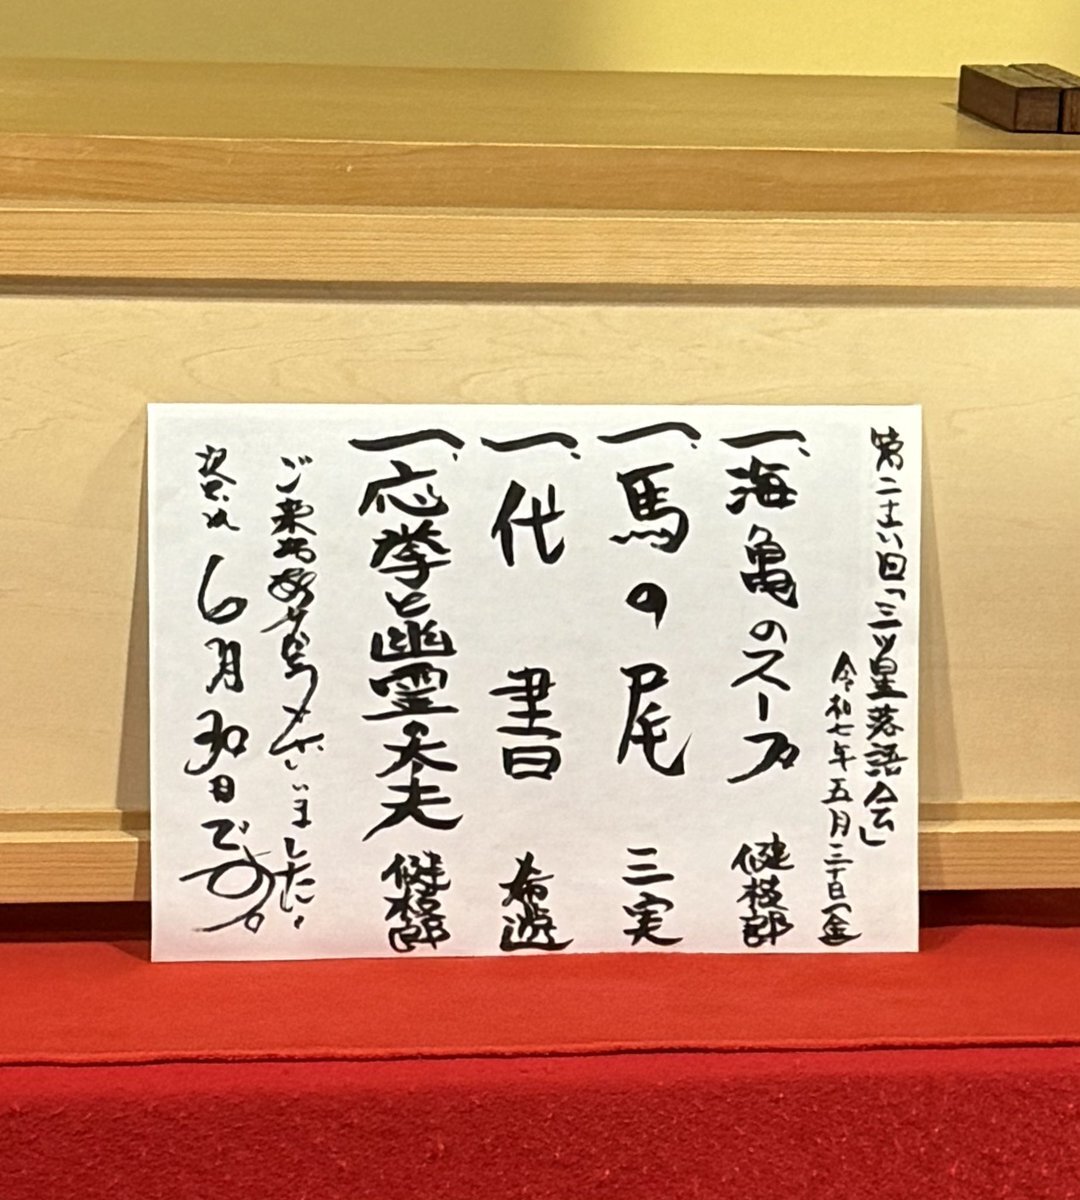 第二十八回「三ツ星落語会」
令和七年五月三十日(金)
一、海亀のスープ 健枝郎
一、馬の尾 三実
一、代書 希遊
一、応挙と幽霊太夫 健枝郎
ご来場ございました
6月30日です。